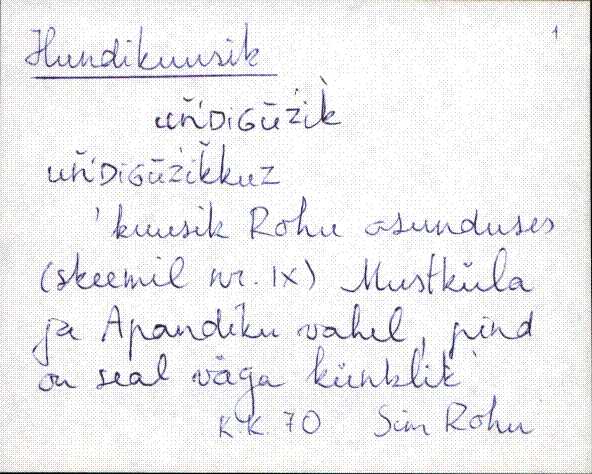 1
Hundikuusik
uňDiGūźik̀
uňDiGūźik̆kuz
'kuusik Rohu asunduses
(skeemil nr. IX) Mustküla
ja Apandiku vahel, pind
on seal väga künklik'
K.K. 70 Sim Rohu